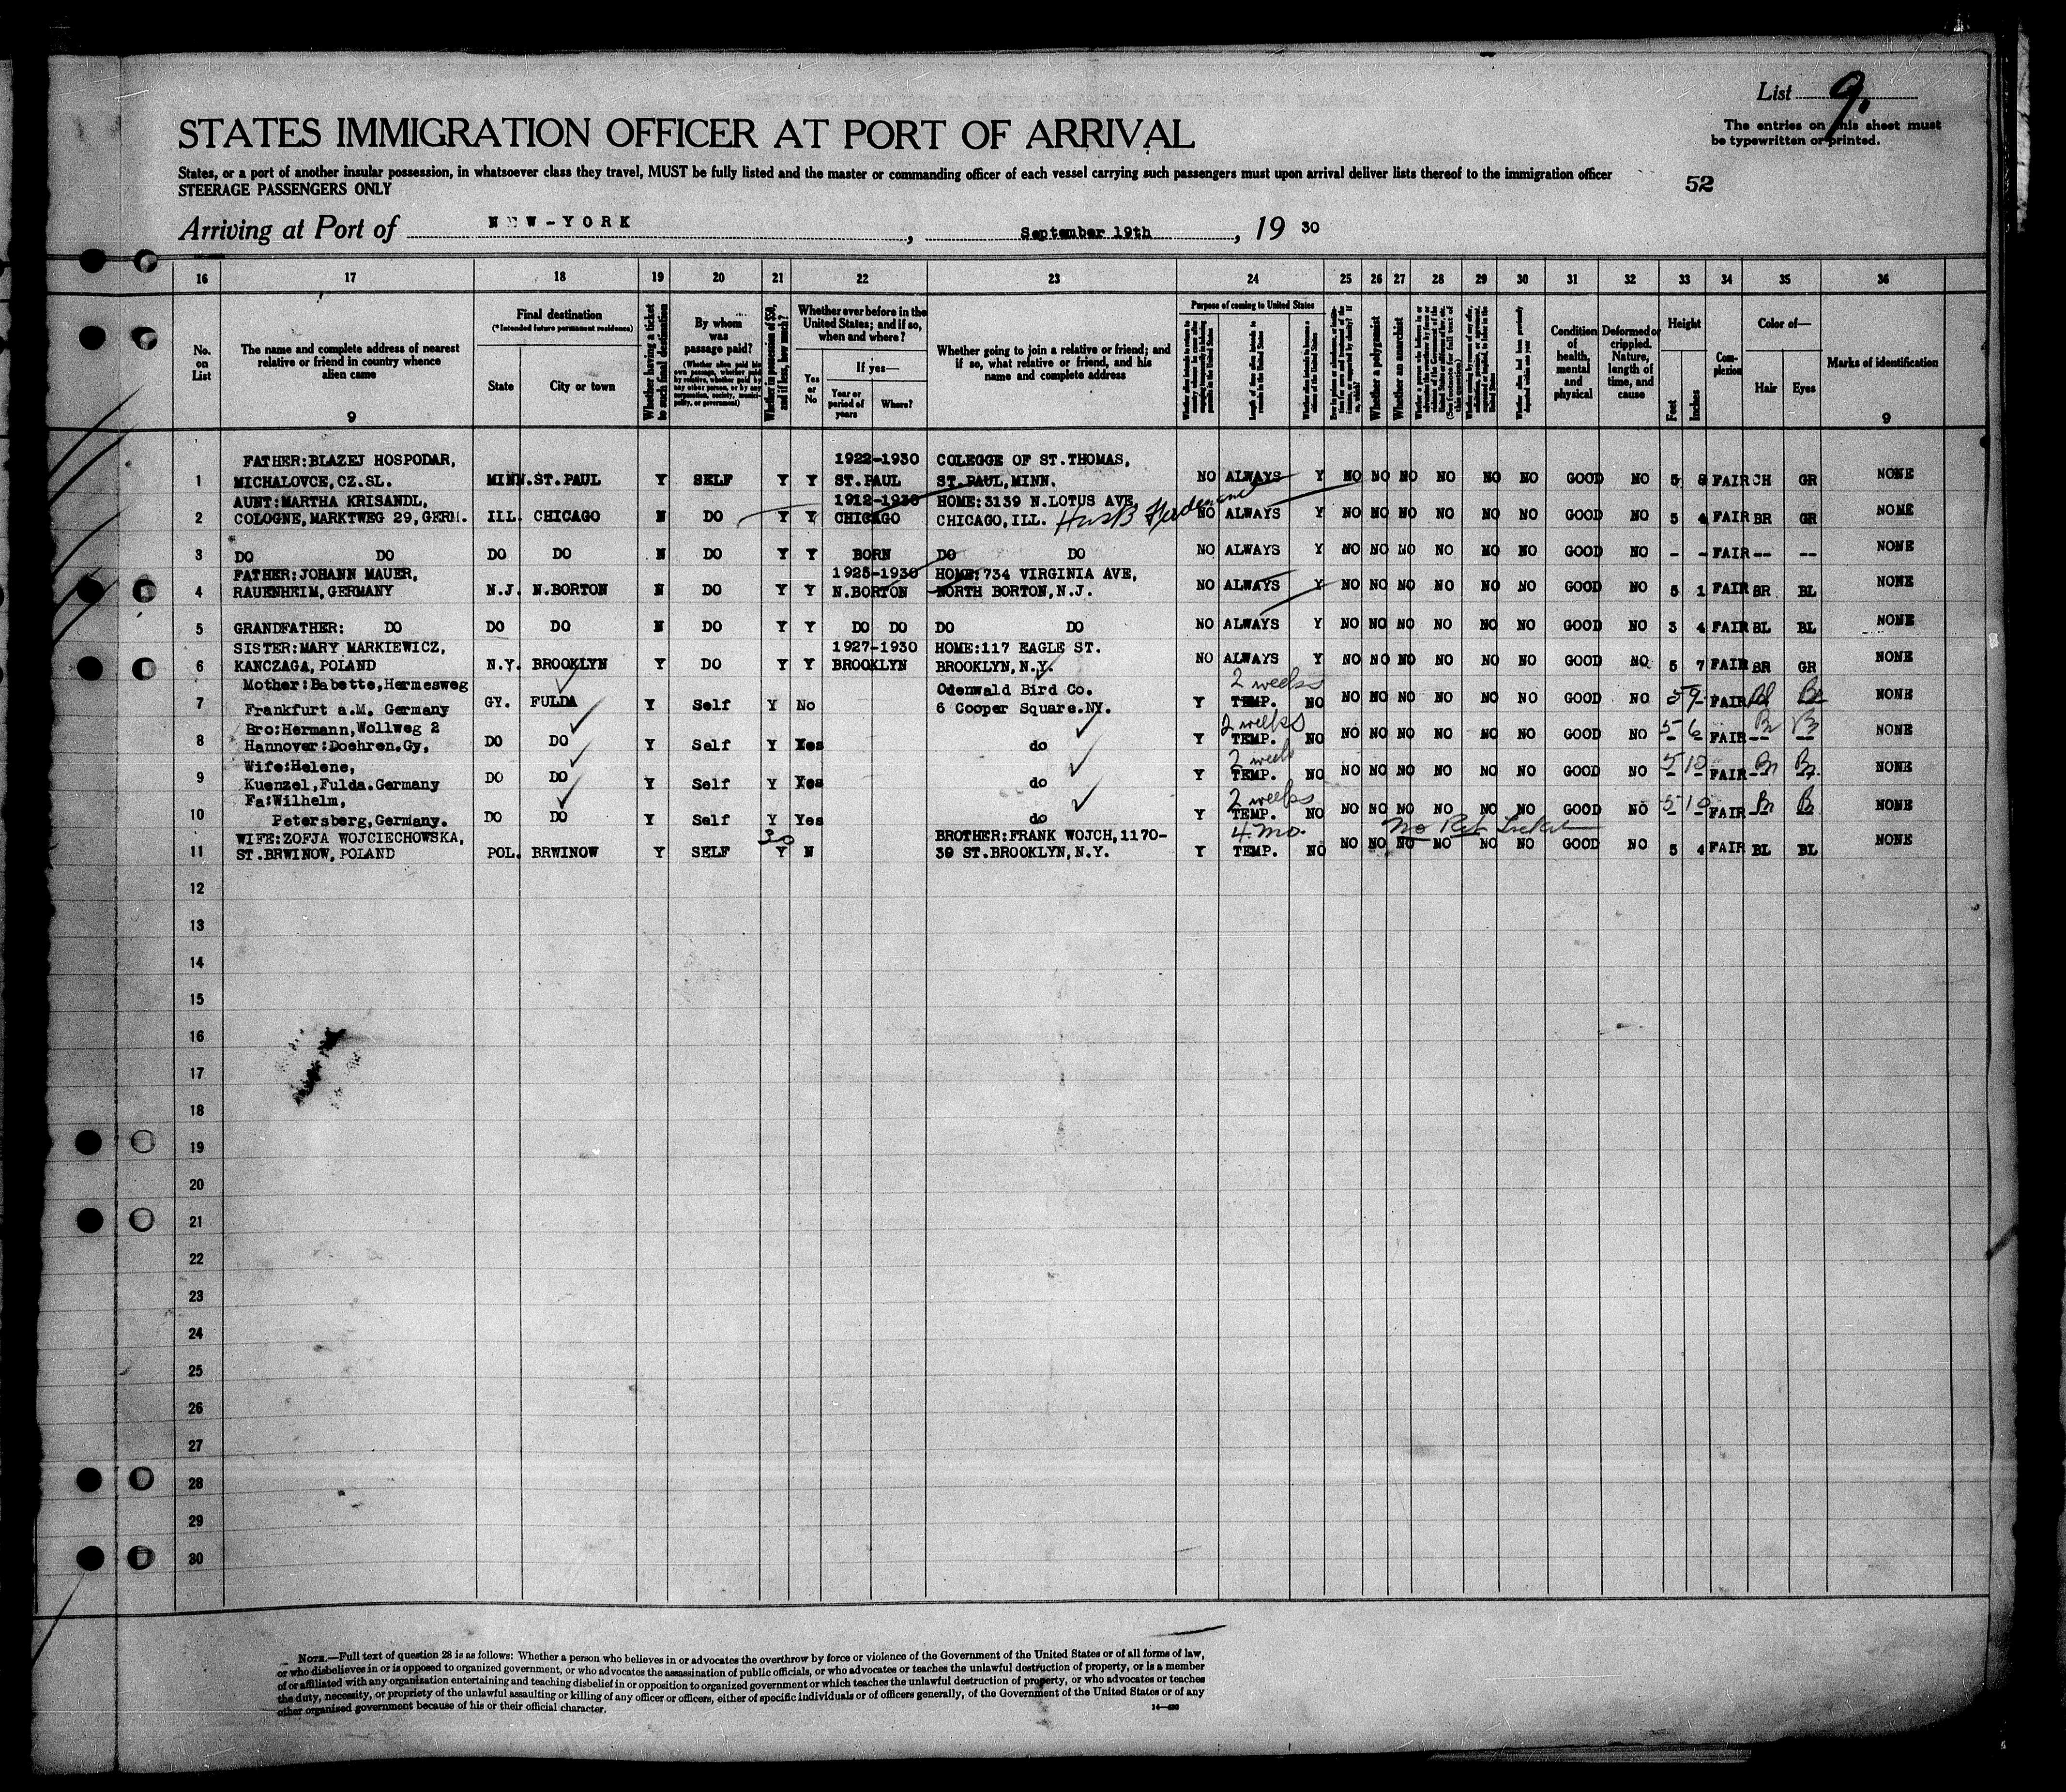 List 9.
The entries on this sheet must
be typewritten or printed.
STATES IMMIGRATION OFFICER AT PORT OF ARRIVAL
States, or a port of another insular possession, in whatsoever class they travel, MUST be fully listed and the master or commanding officer of each vessel carrying such passengers must upon arrival deliver lists thereof to the immigration officer
STEERAGE PASSENGERS ONLY
52
Arriving at Port of NEW-YORK, September 19th, 19 30
16 17 18 19 20 21 22 23 24 25 26 27 28 29 30 31 32 33 34 35 36
No. on List
The name and complete address of nearest relative or friend in country whence alien came
9
Final destination
(*Intended future permanent residence)
State
City or town
Whether having a ticket to such final destination
By whom was passage paid?
(Whether alien paid his own passage, whether paid by relative, whether paid by any other person, or by any corporation, society, municipality, or government)
Whether in possession of $50, and if less, how much?
Whether ever before in the United States; and if so, when and where?
Yes or No
If yes—
Year or period of years
Where?
Whether going to join a relative or friend; and if so, what relative or friend, and his name and complete address
Purpose of coming to United States
Length of time alien intends to remain in the United States
Whether a polygamist
Whether an anarchist
Condition of health, mental and physical
Deformed or crippled. Nature, length of time, and cause
Height
Feet
Inches
Complexion
Color of—
Hair
Eyes
Marks of identification
9
FATHER:BLAZEJ HOSPODAR, 1922-1930 COLEGGE OF ST.THOMAS,
1 MICHALOVCE,CZ.SL. MINN. ST.PAUL Y SELF Y Y ST.PAUL ST.PAUL,MINN. NO ALWAYS Y NO NO NO NO NO NO GOOD NO 5 8 FAIR CH GR NONE
AUNT:MARTHA KRISANDL, 1912-1930 HOME:3139 N.LOTUS AVE
2 COLOGNE,MARKTWEG 29,GERM. ILL. CHICAGO N DO Y Y CHICAGO CHICAGO,ILL. NO ALWAYS Y NO NO NO NO NO NO GOOD NO 5 4 FAIR BR GR NONE
3 DO DO DO DO N DO Y Y BORN DO DO NO ALWAYS Y NO NO NO NO NO NO GOOD NO - - FAIR -- -- NONE
FATHER:JOHANN MAUER, 1925-1930 HOME:734 VIRGINIA AVE,
4 RAUENHEIM,GERMANY N.J. N.BORTON N DO Y Y N.BORTON NORTH BORTON,N.J. NO ALWAYS Y NO NO NO NO NO NO GOOD NO 5 1 FAIR BR BL NONE
5 GRANDFATHER: DO DO DO N DO Y Y DO DO DO DO NO ALWAYS Y NO NO NO NO NO NO GOOD NO 3 4 FAIR BL BL NONE
SISTER:MARY MARKIEWICZ, 1927-1930 HOME:117 EAGLE ST.
6 KANCZAGA,POLAND N.Y. BROOKLYN Y DO Y Y BROOKLYN BROOKLYN,N.Y. NO ALWAYS Y NO NO NO NO NO NO GOOD NO 5 7 FAIR BR GR NONE
Mother:Babette,Hermesweg Odenwald Bird Co. 2 weeks
7 Frankfurt a.M. Germany GY. FULDA Y Self Y No 6 Cooper Square.NY. Y TEMP. NO NO NO NO NO NO NO GOOD NO 5 9 FAIR Bl Br NONE
Bro:Hermann,Wollweg 2 2 weeks
8 Hannover:Doehren.Gy, DO DO Y Self Y Yes do Y TEMP. NO NO NO NO NO NO NO GOOD NO 5 6 FAIR Br Br NONE
Wife:Helene, 2 weeks
9 Kuenzel,Fulda.Germany DO DO Y Self Y Yes do Y TEMP. NO NO NO NO NO NO NO GOOD NO 5 10 FAIR Br Br NONE
Fa:Wilhelm, 2 weeks
10 Petersberg,Germany. DO DO Y Self Y Yes do Y TEMP. NO NO NO NO NO NO NO GOOD NO 5 10 FAIR Br Br NONE
WIFE:ZOFJA WOJCIECHOWSKA, 30 BROTHER:FRANK WOJCH,1170- 4 mo. No Ret Ticket
11 ST.BRWINOW,POLAND POL. BRWINOW Y SELF Y N 39 ST.BROOKLYN,N.Y. Y TEMP. NO NO NO NO NO NO NO GOOD NO 5 4 FAIR BL BL NONE
12
13
14
15
16
17
18
19
20
21
22
23
24
25
26
27
28
29
30
NOTE.—Full text of question 28 is as follows: Whether a person who believes in or advocates the overthrow by force or violence of the Government of the United States or of all forms of law,
or who disbelieves in or is opposed to organized government, or who advocates the assassination of public officials, or who advocates or teaches the unlawful destruction of property, or is a member
of or affiliated with any organization entertaining and teaching disbelief in or opposition to organized government or which teaches the unlawful destruction of property, or who advocates or teaches
the duty, necessity, or propriety of the unlawful assaulting or killing of any officer or officers, either of specific individuals or of officers generally, of the Government of the United States or of any
other organized government because of his or their official character.
14—430